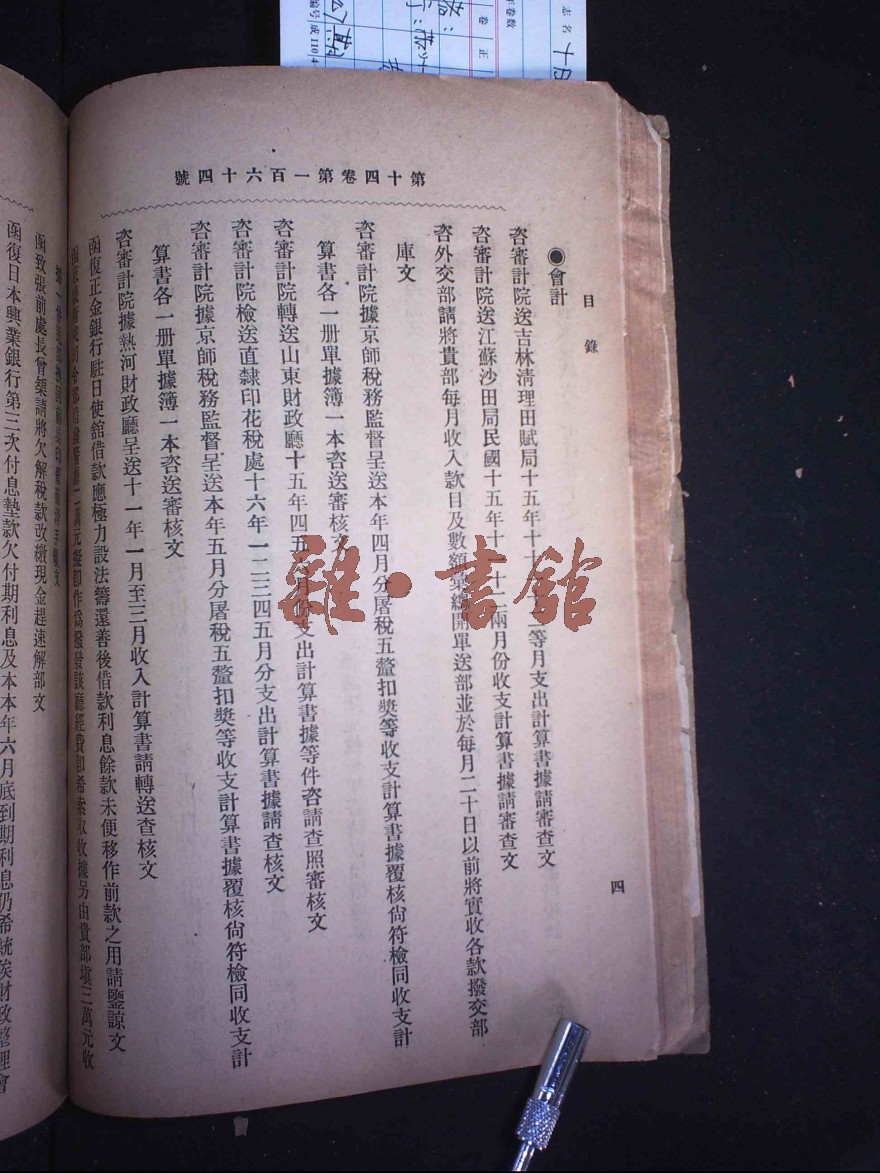 第十四卷第一百六十四號
目錄
四
●會計
咨審計院送吉林淸理田賦局十五年十 等月支出計算書據請審查文
咨審計院送江蘇沙田局民國十五年十 十二兩月份收支計算書據請審查文
咨外交部請將貴部每月收入款目及數額彙總開單送部並於每月二十日以前將實收各款撥交部
庫文
咨審計院據京師稅務監督呈送本年四月分屠稅五釐扣獎等收支計算書據覆核尙符檢同收支計
算書各一册單據簿一本咨送審核文
咨審計院轉送山東財政廳十五年四五 月份支出計算書據等件咨請查照審核文
咨審計院檢送直隸印花稅處十六年一二三四五月分支出計算書據請查核文
咨審計院據京師稅務監督呈送本年五月分屠稅五釐扣獎等收支計算書據覆核尙符檢同收支計
算書各一册單據簿一本咨送審核文
咨審計院據熱河財政廳呈送十一年一月至三月收入計算書請轉送查核文
函復正金銀行駐日使舘借款應極力設法籌還善後借款利息餘款未便移作前款之用請鑒諒文
二萬元擬卽作爲撥發該廳經費卽希 取收據另由貴部塡三萬元收
函致張前處長曾榘請將欠解稅款改繳現金趕速解部文
函復日本興業銀行第三次付息墊款欠付期利息及本本年六月底到期利息仍希統俟財政整理會
雜·書館